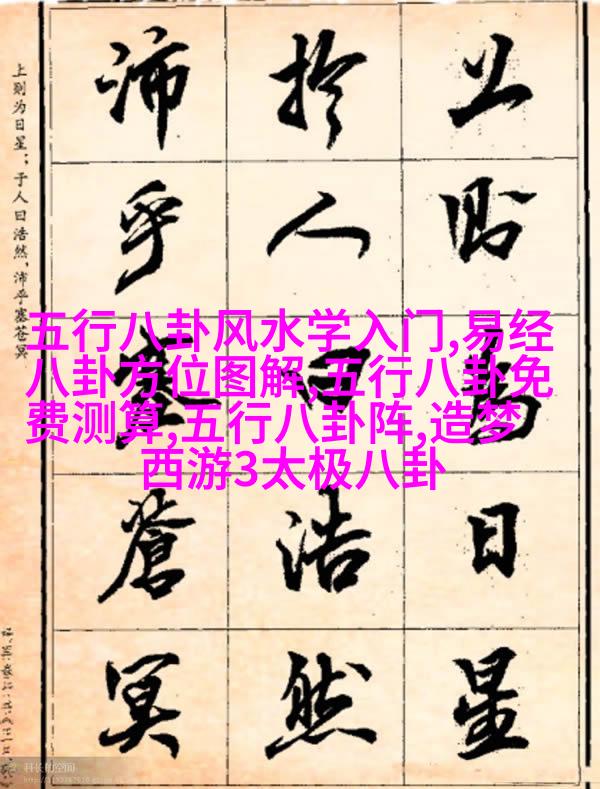 上則為日星
於人曰浩然
沛乎塞蒼冥
上则为日星；于人曰浩然，沛乎塞苍冥
五行八卦风水学入门,易经
八卦方位图解,五行八卦免
费测算,五行八卦阵,造梦
西游3太极八卦
科长的空间